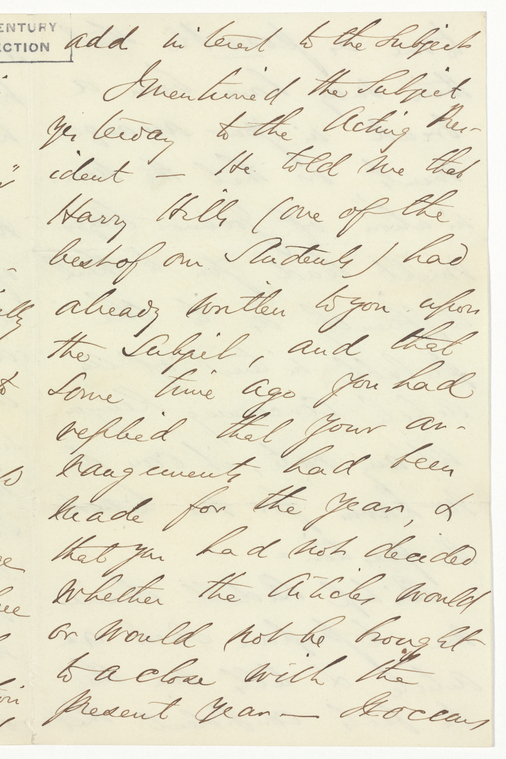 ENTURY
ECTION
add interest to the Subject
I mentioned the Subject
yesterday to the Acting Pres-
ident — He told me that
Harry Hills (one of the
best of our Students) had
already written to you upon
the Subject, and that
some time ago you had
replied that your ar-
rangements had been
made for the year, &
that you had not decided
whether the Articles would
or would not be brought
to a close with the
present year — It occurs